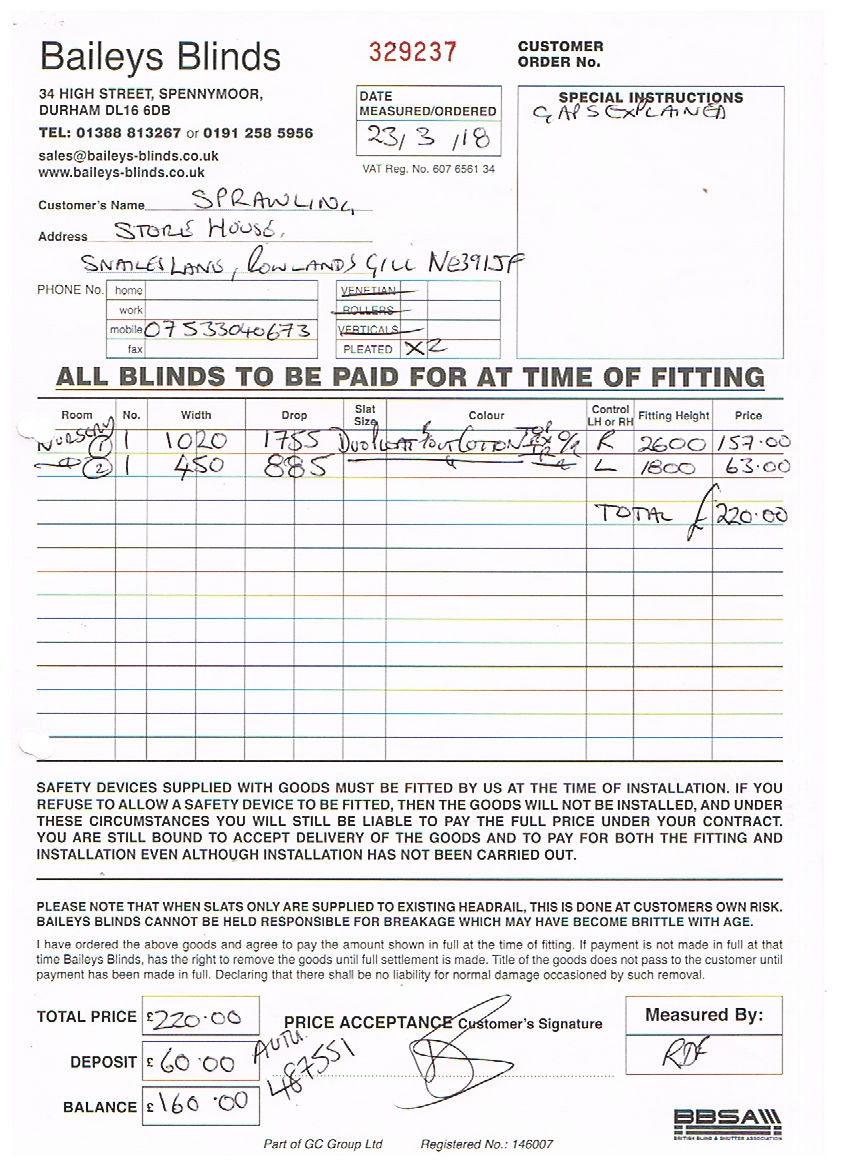 Baileys Blinds
34 HIGH STREET, SPENNYMOOR,
DURHAM DL16 6DB
TEL: 01388 813267 or 0191 258 5956
sales@baileys-blinds.co.uk
www.baileys-blinds.co.uk
329237
DATE
MEASURED/ORDERED
23/3/18
VAT Reg. No. 607 6561 34
CUSTOMER
ORDER No.
SPECIAL INSTRUCTIONS
GAPS EXPLAINED
Customer's Name SPRAWLING
Address STORE HOUSE,
LANE, ROWLANDS GILL NE39 1JF
PHONE No. home
work
mobile 07533040673
fax
VENETIAN
ROLLERS
VERTICALS
PLEATED X2
ALL BLINDS TO BE PAID FOR AT TIME OF FITTING
Room No. Width Drop Slat Size Colour Control LH or RH Fitting Height Price
NURSERY 1 1 1020 1755 COTTON R 2600 157.00
2 1 450 885 L 1800 63.00
TOTAL £220.00
SAFETY DEVICES SUPPLIED WITH GOODS MUST BE FITTED BY US AT THE TIME OF INSTALLATION. IF YOU
REFUSE TO ALLOW A SAFETY DEVICE TO BE FITTED, THEN THE GOODS WILL NOT BE INSTALLED, AND UNDER
THESE CIRCUMSTANCES YOU WILL STILL BE LIABLE TO PAY THE FULL PRICE UNDER YOUR CONTRACT.
YOU ARE STILL BOUND TO ACCEPT DELIVERY OF THE GOODS AND TO PAY FOR BOTH THE FITTING AND
INSTALLATION EVEN ALTHOUGH INSTALLATION HAS NOT BEEN CARRIED OUT.
PLEASE NOTE THAT WHEN SLATS ONLY ARE SUPPLIED TO EXISTING HEADRAIL, THIS IS DONE AT CUSTOMERS OWN RISK.
BAILEYS BLINDS CANNOT BE HELD RESPONSIBLE FOR BREAKAGE WHICH MAY HAVE BECOME BRITTLE WITH AGE.
I have ordered the above goods and agree to pay the amount shown in full at the time of fitting. If payment is not made in full at that
time Baileys Blinds, has the right to remove the goods until full settlement is made. Title of the goods does not pass to the customer until
payment has been made in full. Declaring that there shall be no liability for normal damage occasioned by such removal.
TOTAL PRICE £220.00
DEPOSIT £60.00
BALANCE £160.00
AUTH.
487551
PRICE ACCEPTANCE Customer's Signature
Measured By:
RDF
BBSA
BRITISH BLIND & SHUTTER ASSOCIATION
Part of GC Group Ltd Registered No.: 146007